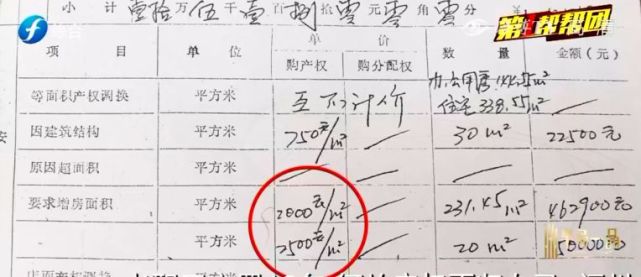 小计 壹拾 万 伍 千 壹 百 捌 拾 零 元 零 角 零 分
第1帮帮团
项目 单位 单价 数量 金额(元)
购产权 购分配权
办公用房144.55m²
等面积产权调换 平方米 互不计价 住宅338.55m²
因建筑结构 平方米 750元/m² 30m² 22500元
原因超面积 平方米
要求增房面积 平方米 2000元/m² 231.45m² 462900元
平方米 2500元/m² 20m² 50000元
安